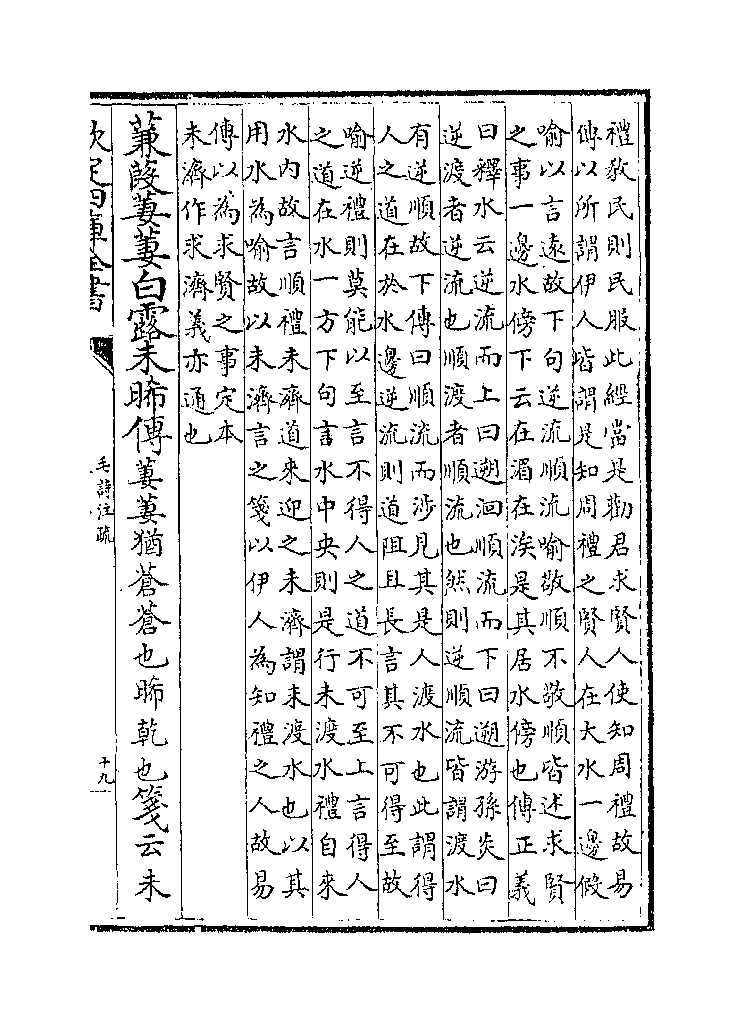 禮敎民則民服此經當是勸君求賢人使知周禮故易
傳以所謂伊人皆謂是知周禮之賢人在大水一邊假
喻以言遠故下句逆流順流喻敬順不敬順皆述求賢
之事一邊水傍下云在湄在涘是其居水傍也傳正義
曰釋水云逆流而上曰遡洄順流而下曰遡游孫炎曰
逆渡者逆流也順渡者順流也然則逆順流皆謂渡水
有逆順故下傳曰順流而涉見其是人渡水也此謂得
人之道在於水邊逆流則道阻且長言其不可得至故
喻逆禮則莫能以至言不得人之道不可至上言得人
之道在水一方下句言水中央則是行未渡水禮自來
水内故言順禮未濟道來迎之未濟謂未渡水也以其
用水為喻故以未濟言之箋以伊人為知禮之人故易
傳以為求賢之事定本
未濟作求濟義亦通也
蒹葭萋萋白露未晞傳萋萋猶蒼蒼也晞乾也箋云未
欽定四庫全書
毛詩注疏
十九